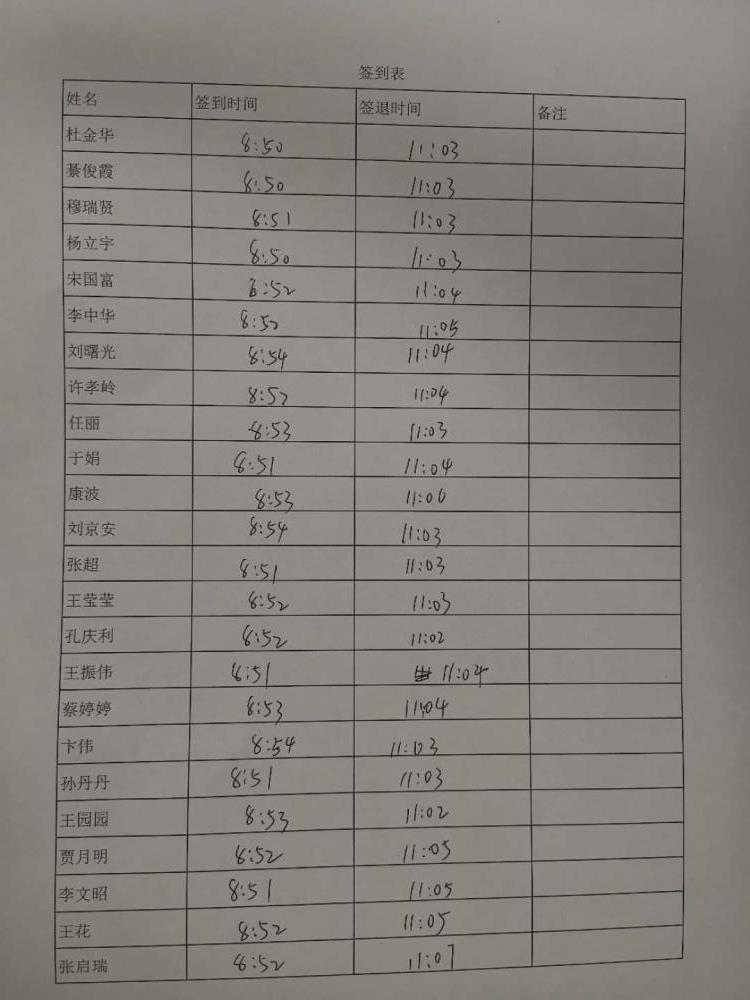 签到表
姓名 签到时间 签退时间 备注
杜金华 8:50 11:03
綦俊霞 8:50 11:03
穆瑞贤 8:51 11:03
杨立宇 8:50 11:03
宋国富 8:52 11:04
李中华 8:52 11:05
刘曙光 8:54 11:04
许孝岭 8:52 11:04
任丽 8:53 11:03
于娟 8:51 11:04
康波 8:53 11:06
刘京安 8:54 11:03
张超 8:51 11:03
王莹莹 8:52 11:03
孔庆利 8:52 11:02
王振伟 8:51 11:04
蔡婷婷 8:53 11:04
卞伟 8:54 11:03
孙丹丹 8:51 11:03
王园园 8:53 11:02
贾月明 8:52 11:05
李文昭 8:51 11:05
王花 8:52 11:05
张启瑞 8:52 11:07